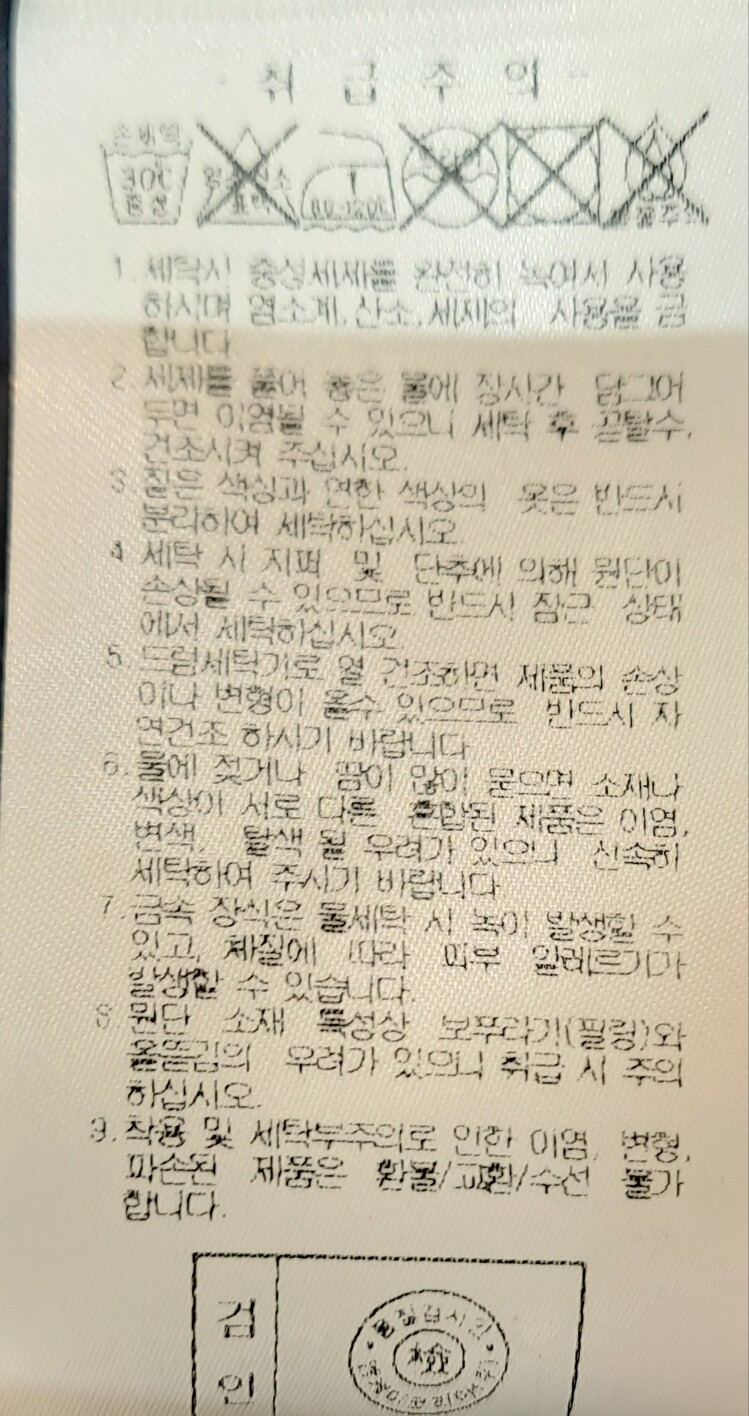 취급주의
손세탁
30℃
중성
1. 세탁시 중성세제를 완전히 녹여서 사용
하시며 염소계.산소.세제의 사용을 금
합니다
2. 세제를 풀어 놓은 물에 장시간 담그어
두면 이염될 수 있으니 세탁 후 끝탈수.
건조시켜 주십시오.
3. 짙은 색상과 연한 색상의 옷은 반드시
분리하여 세탁하십시오.
4. 세탁 시 지퍼 및 단추에 의해 원단이
손상될 수 있으므로 반드시 잠근 상태
에서 세탁하십시오.
5. 드럼세탁기로 열 건조하면 제품의 손상
이나 변형이 올수 있으므로 반드시 자
연건조 하시기 바랍니다
6. 물에 젖거나 땀이 많이 묻으면 소재나
색상이 서로 다른 혼합된 제품은 이염,
변색, 탈색 될 우려가 있으니 신속히
세탁하여 주시기 바랍니다.
7. 금속 장식은 물세탁 시 녹이 발생할 수
있고, 체질에 따라 피부 알레르기가
발생할 수 있습니다.
8. 원단 소재 특성상 보푸라기(필링)와
올뜯김의 우려가 있으니 취급 시 주의
하십시오.
9. 착용 및 세탁부주의로 인한 이염, 변형,
파손된 제품은 환불/교환/수선 불가
합니다.
검
인
檢